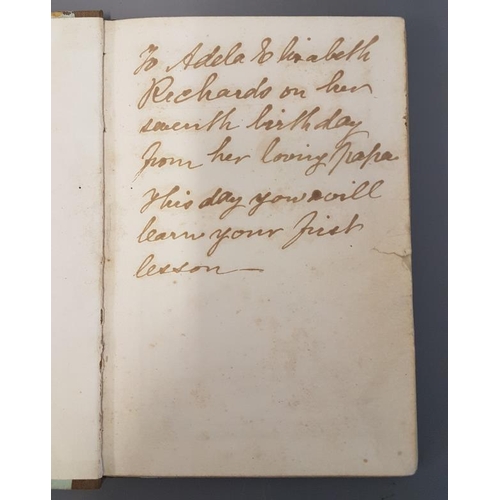 To Adela Elizabeth
Richards on her
seventh birthday
from her loving Papa
This day you will
learn your first
lesson —